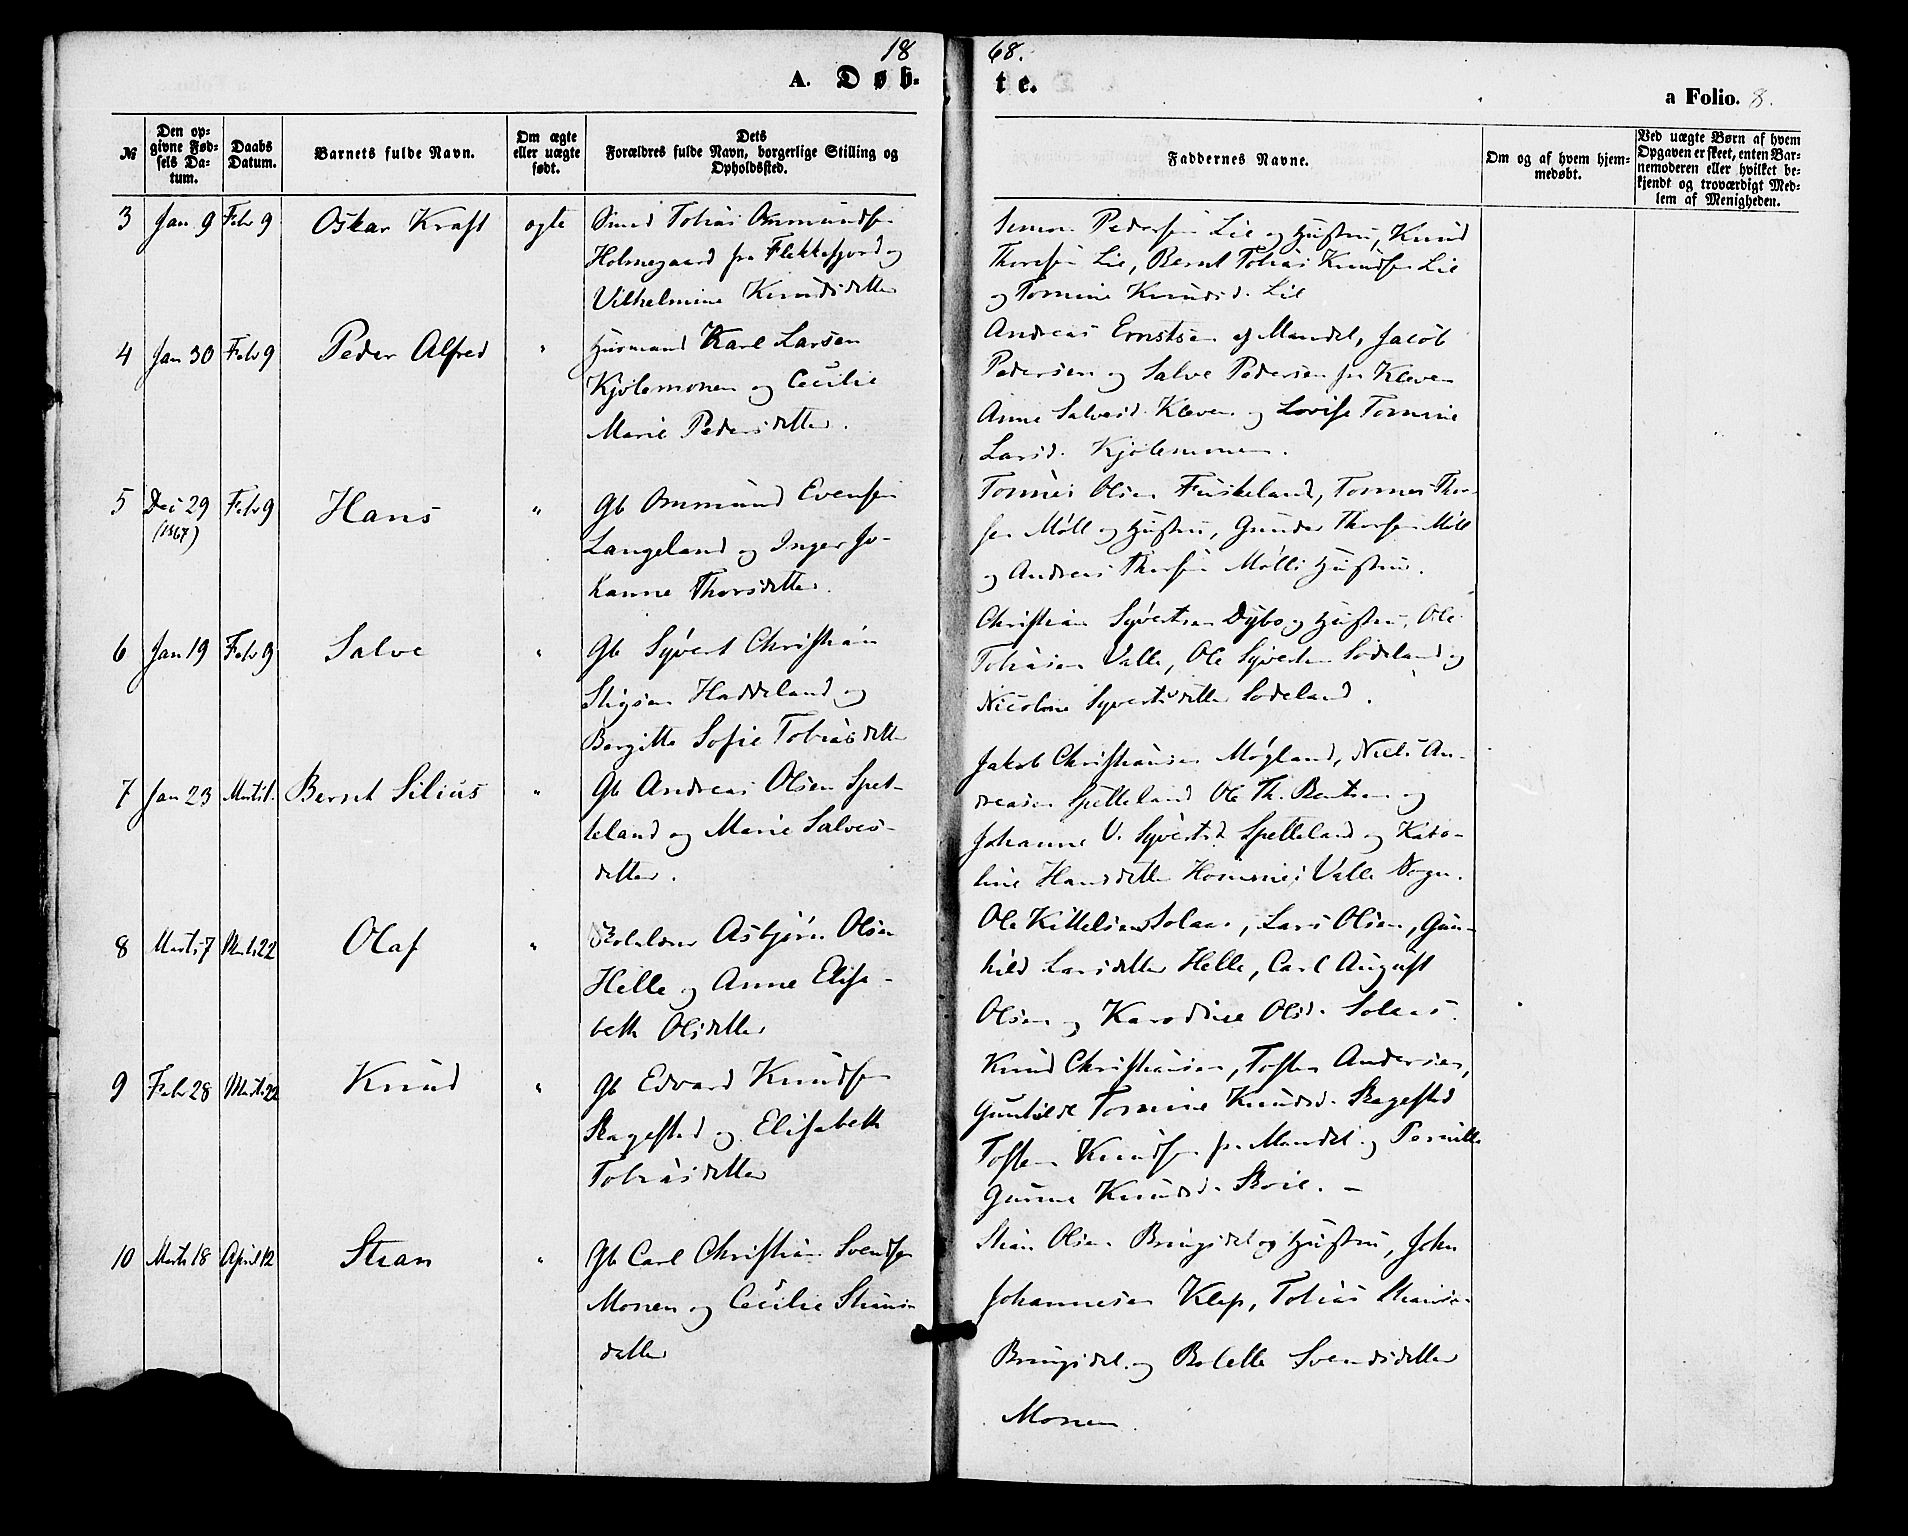 18 68.
A. Døb- te.
a Folio. 8.
№
Den op-
givne Fød-
sels Da-
tum.
Daabs
Datum.
Barnets fulde Navn.
Om ægte
eller uægte
født.
Dets
Forældres fulde Navn, borgerlige Stilling og
Opholdssted.
Faddernes Navne.
Om og af hvem hjem-
medøbt.
Ved uægte Børn af hvem
Opgaven er skeet, enten Bar-
nemoderen eller hvilket be-
kjendt og troværdigt Med-
lem af Menigheden.
3 Jan 9 Febr 9 Oskar Kraft ægte
Tobias Ommundsen
Holmegaard fra Flekkefjord og
Vilhelmine Knudsdatter
Simon Pedersen Lie og Hustru, Knud
Thoresen Lie, Bernt Tobias Knudsen Lie
og Tomine Knudsd. Lie
4 Jan 30 Febr 9 Peder Alfred "
Husmand Karl Larsen
Kjølemonen og Cecilie
Marie Pedersdatter.
Andreas Ernstsen af Mandal, Jacob
Pedersen og Salve Pedersen fra Kleven
Anne Salvesd. Kleven og Lovise Tomine
Larsd. Kjølemonen.
5 Dec 29 Febr 9 Hans "
(1867)
Gb Ommund Evensen
Langeland og Inger Jo-
hanne Thorsdatter.
Tønnes Olsen Fuskeland, Tønnes Thor-
sen Møll og Hustru, Gunder Thorsen Møll
og Andreas Thorsen Mølls Hustru.
6 Jan 19 Febr 9 Salve "
Gb Syvert Christian
Stigsen Haddeland og
Bergitte Sofie Tobiasdatter
Christian Syvertsen Dybo og Hustru, Ole
Tobiasen Valle, Ole Syvertsen Sodeland og
Nicoline Syvertsdatter Sodeland.
7 Jan 23 Marts 1. Bernt Silius "
Gb Andreas Olsen Spet-
teland og Marie Salves-
datter.
Jakob Christiansen Møgland, Niels An-
dreasen Spetteland Ole Th. Bentsen og
Johanne V. Syvertsd. Spetteland og Karo-
line Hansdatter Homme i Valle Sogn.
8 Marts 7 Marts 22 Olaf "
Skolelærer Asbjørn Olsen
Helle og Anne Elisa-
beth Olsdatter
Ole Kittelsen Solaas, Lars Olsen, Gun-
hild Larsdatter Helle, Carl August
Olsen og Karodine Olsd. Solaas.
9 Febr 28 Marts 22 Knud "
Gb Edvard Knudsen
Skagestad og Elisabeth
Tobiasdatter
Knud Christiansen, Tosten Andersen,
Gunhilde Tomine Knudsd. Skagestad
Tosten Knudsen fra Mandal og Pernille
Gunne Knudsd. Skoie. –
10 Marts 18 April 12 Stian "
Gb Carl Christian Svendsen
Monen og Cecilie Stians-
datter
Stian Olsen Bringsdal og Hustru, John
Johannesen Klep, Tobias Stiansen
Bringsdal og Bolette Svendsdatter
Monen.